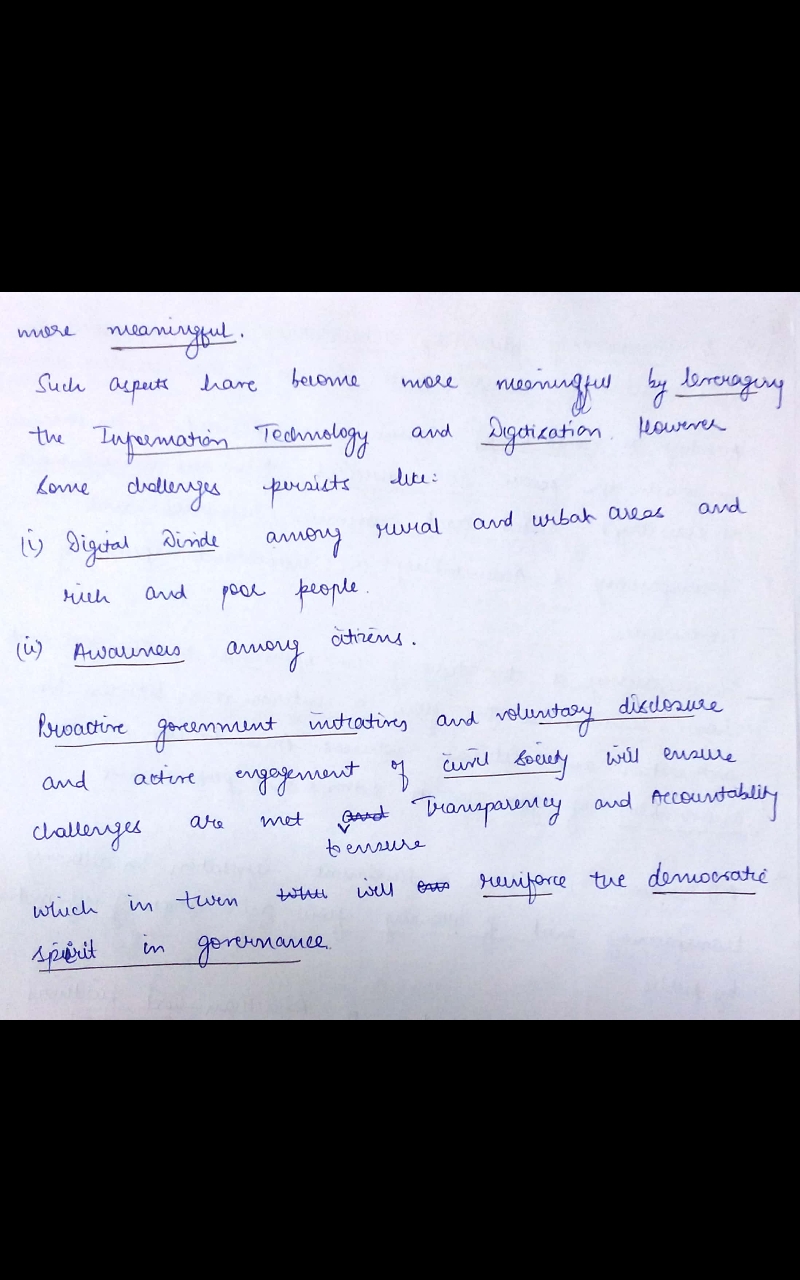 more meaningful.
Such aspects have become more meaningful by leveraging
the Information Technology and Digitization. However
some challenges persists like:
(i) Digital Divide among rural and urban areas and
rich and poor people.
(ii) Awareness among citizens.
Proactive government initiatives and voluntary disclosure
and active engagement of civil society will ensure
challenges are met and Transparency and Accountability
to ensure
which in turn will reinforce the democratic
spirit in governance.